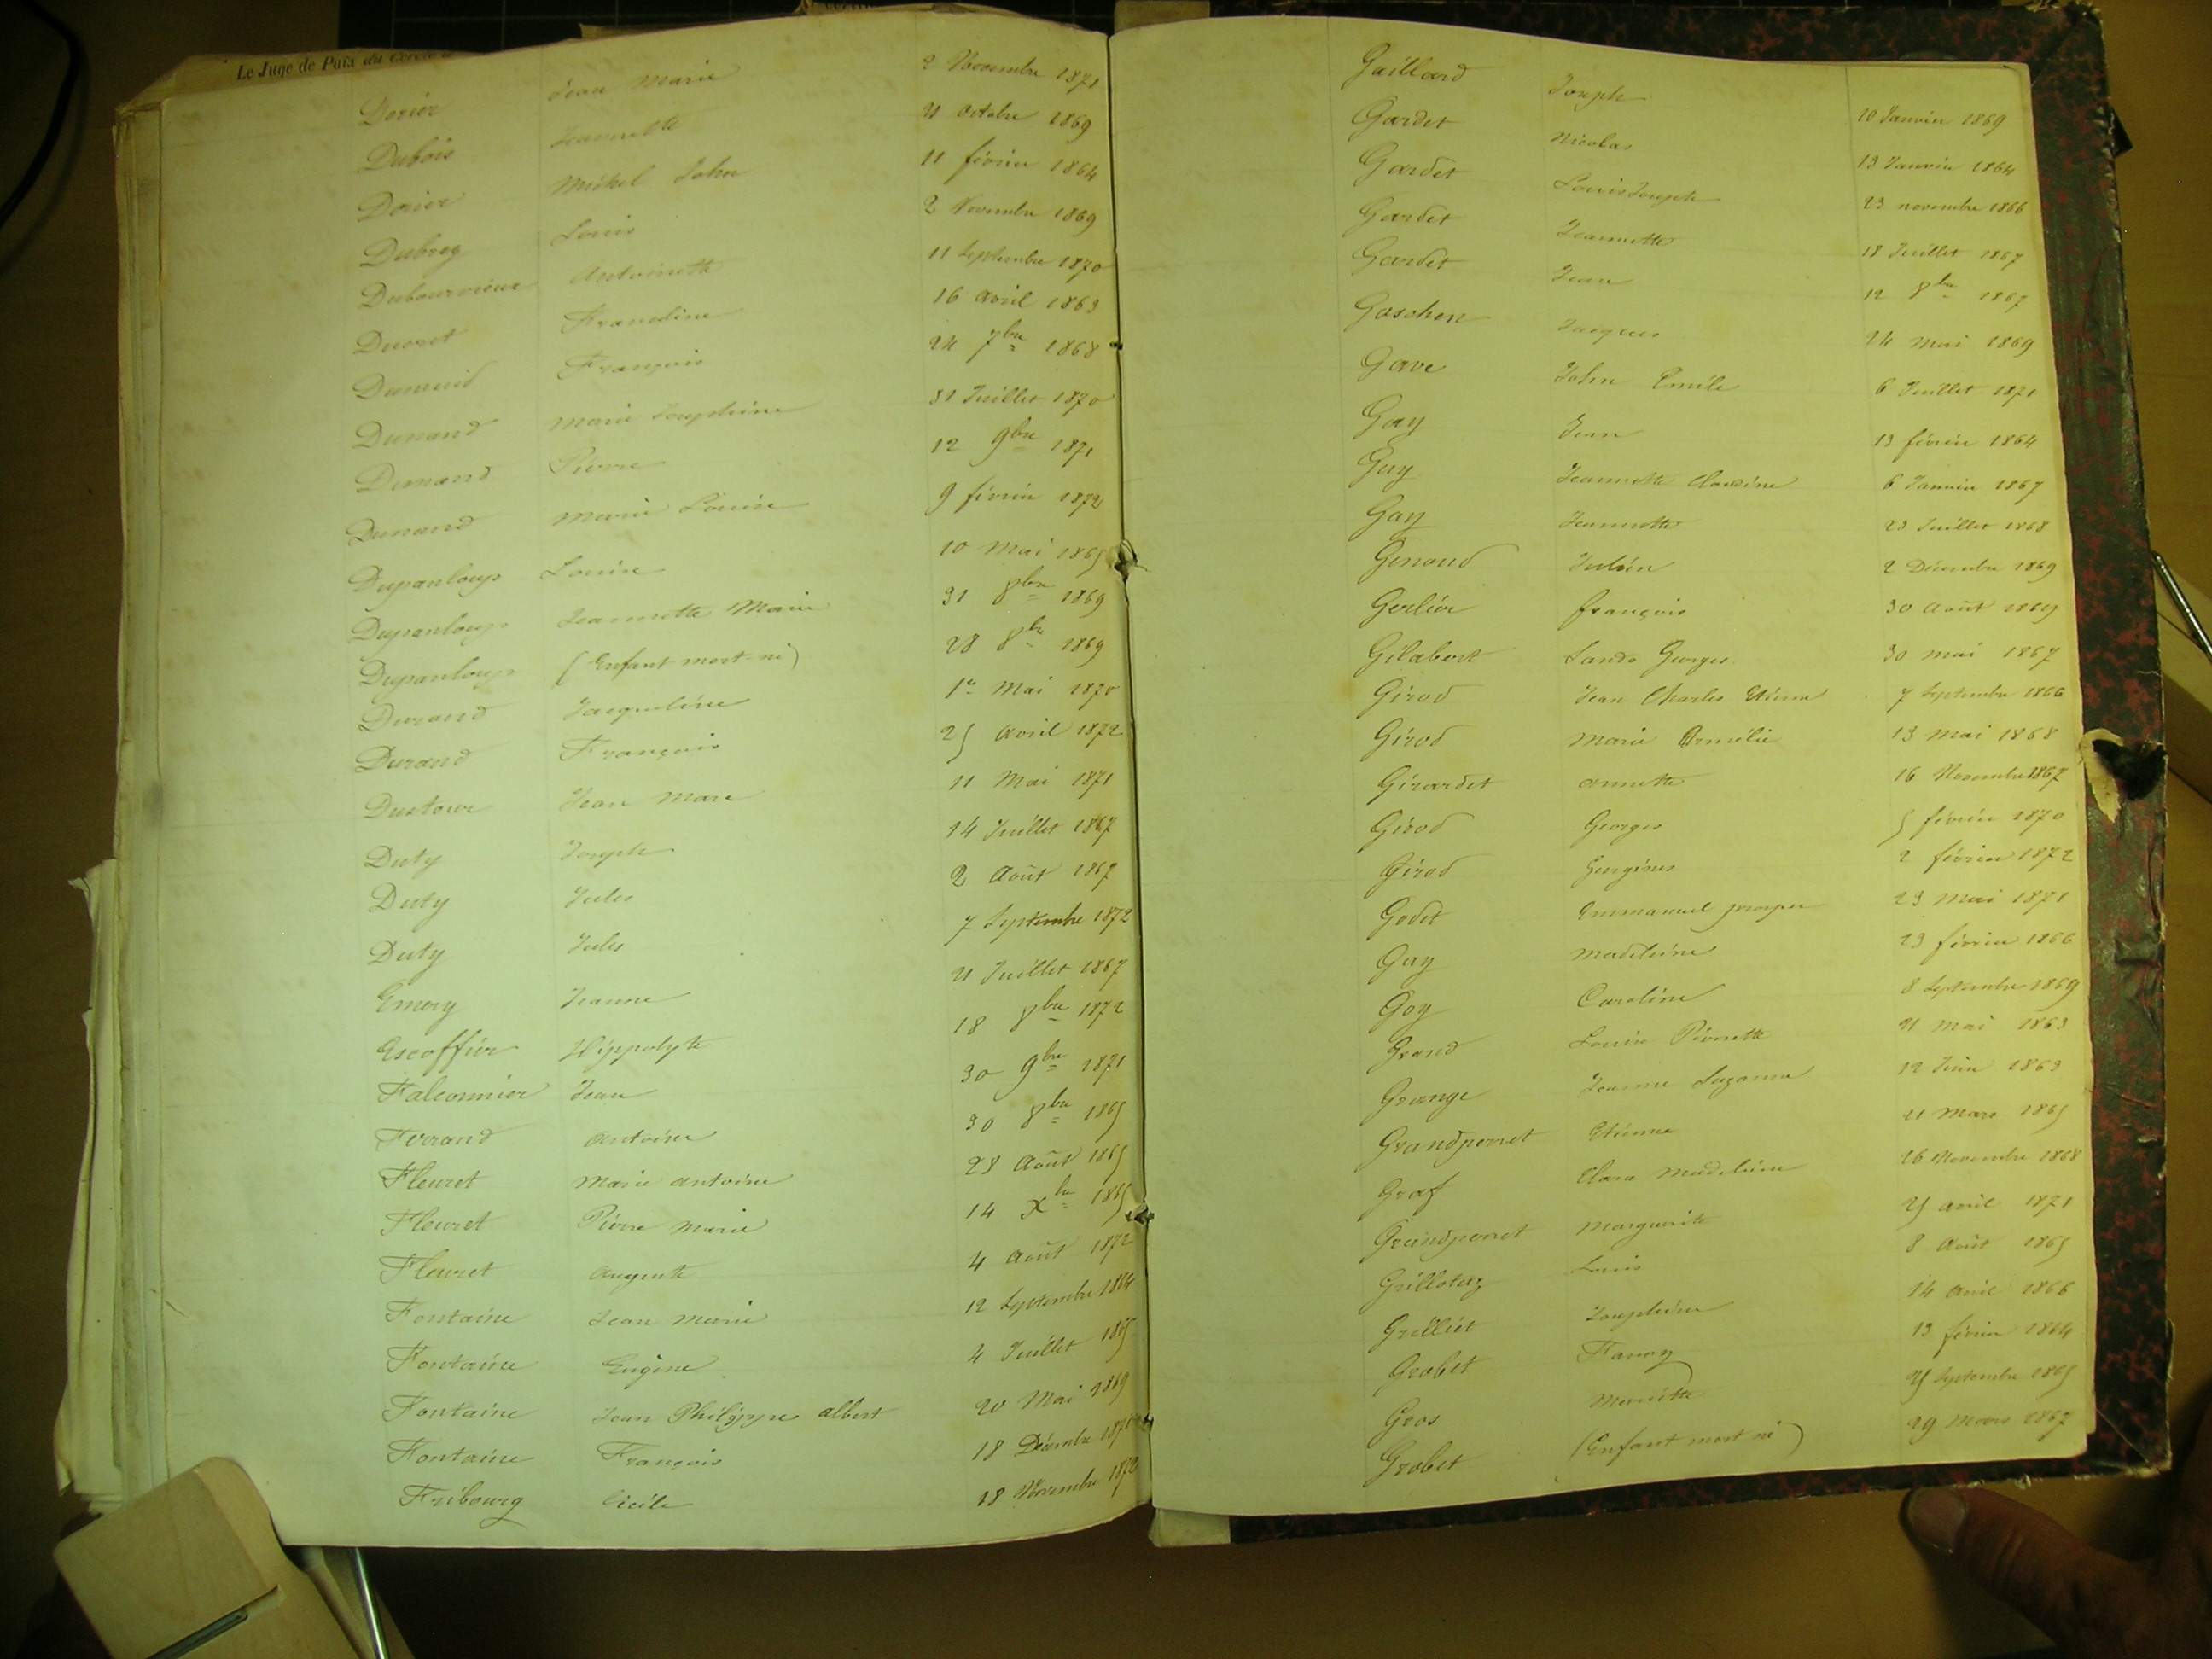 Le Juge de Paix du Cercle
Dorier Jean Marie 2 Novembre 1871
Dubois Jeannette 21 Octobre 1869
Dorier Michel John 11 février 1864
Dubrey Louis 2 Novembre 1869
Antoinette 11 Septembre 1870
Ducret Francoline 16 avril 1863
François 24 7bre 1868
Dunand Marie Joséphine 31 Juillet 1870
Dunand Pierre 12 9bre 1871
Dunand Marie Louise 9 février 1872
Dupanloup Louise 10 Mai 1865
Dupanloup Jeannette Marie 31 8bre 1869
Dupanloup (Enfant mort-né) 28 8bre 1869
Durand Jacqueline 1er Mai 1870
Durand François 25 avril 1872
Dustour Jean Marc 11 Mai 1871
Duty Joseph 14 Juillet 1867
Duty Jules 2 Août 1867
Duty Jules 7 Septembre 1872
Emery Jeanne 21 Juillet 1867
Escoffier Hippolyte 18 8bre 1872
Falconnier Jean 30 9bre 1871
Ferrand Antoine 30 8bre 1865
Fleuret Marie antoine 28 Août 1865
Fleuret Pierre Marie 14 Xbre 1865
Fleuret Auguste 4 Août 1872
Fontaine Jean Marie 12 Septembre 1864
Fontaine Eugène 4 Juillet 1865
Fontaine Jean Philippe albert 20 Mai 1869
Fontaine François 18 Décembre
Fribourg Cécile 18 Novembre 1872
Gaillard Joseph 10 Janvier 1869
Gardet Nicolas 13 Janvier 1864
Gardet Louis Joseph 23 novembre 1866
Gardet Jeannette 18 Juillet 1867
Gardet Jean 12 8bre 1867
Goschen Jacques 24 Mai 1869
Gave John Emile 6 Juillet 1871
Gay Jean 13 février 1864
Gay Jeannette Claudine 6 Janvier 1867
Gay Jeannette 23 Juillet 1868
Genoud Julien 2 Décembre 1869
Gerlier françois 30 Août 1869
Gilabert Georges 30 mai 1867
Girod Jean Charles Etienne 7 Septembre 1866
Girod Marie Armélie 13 Mai 1868
Girardet annette 16 Novembre 1867
Girod Georges 5 février 1870
Girod 2 février 1872
Godet Emmanuel prosper 23 Mai 1871
Gay Madeleine 23 février 1866
Goy Caroline 8 Septembre 1869
Grand Louise Pernette 21 Mai 1863
Grange Jeanne Suzanne 12 Juin 1863
Grandperret Etienne 21 Mars 1865
Graf Clara Madeleine 26 Novembre 1868
Grandperret Marguerite 25 avril 1871
Grilloty Louis 8 Août 1865
Grilliet Joséphine 14 avril 1866
Grobet Fanny 13 février 1864
Gros Mariette 25 Septembre 1865
Grobet (Enfant mort né) 29 Mars 1867